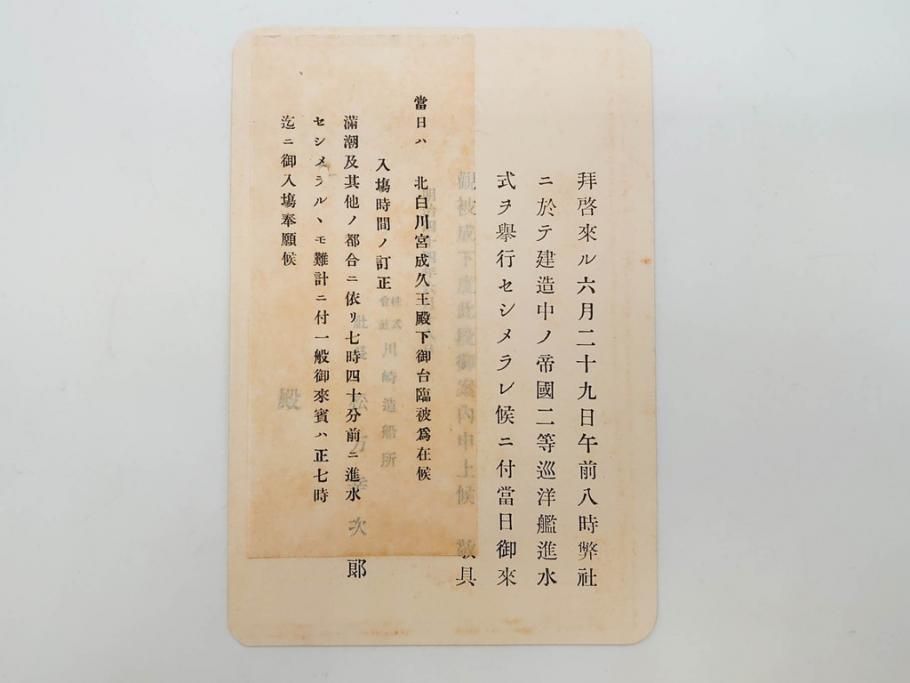 拜啓來ル六月二十九日午前八時弊社
ニ於テ建造中ノ帝國二等巡洋艦進水
式ヲ擧行セシメラレ候ニ付當日御來
觀被成下度此段御案內申上候 敬具
川崎造船所
松方幸次郞
殿
當日ハ 北白川宮成久王殿下御台臨被爲在候
入塲時間ノ訂正
滿潮及其他ノ都合ニ依リ七時四十分前ニ進水
セシメラルヽモ難計ニ付一般御來賓ハ正七時
迄ニ御入塲奉願候